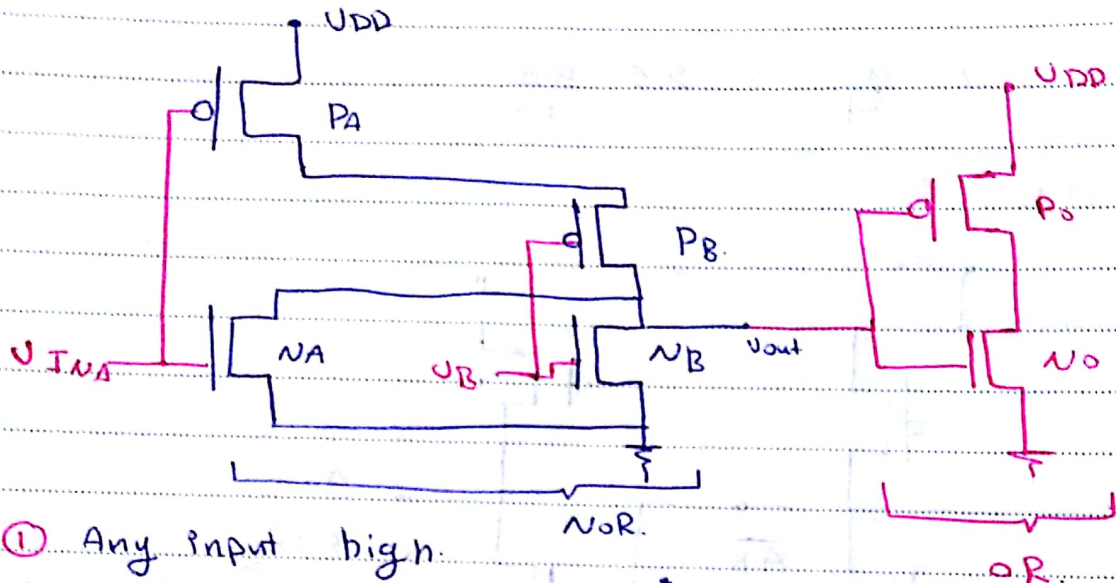 VDD
VDD
PA
Po
PB.
VINA
NA
VB
NB
Vout
NO
NOR.
OR.
① Any input high.